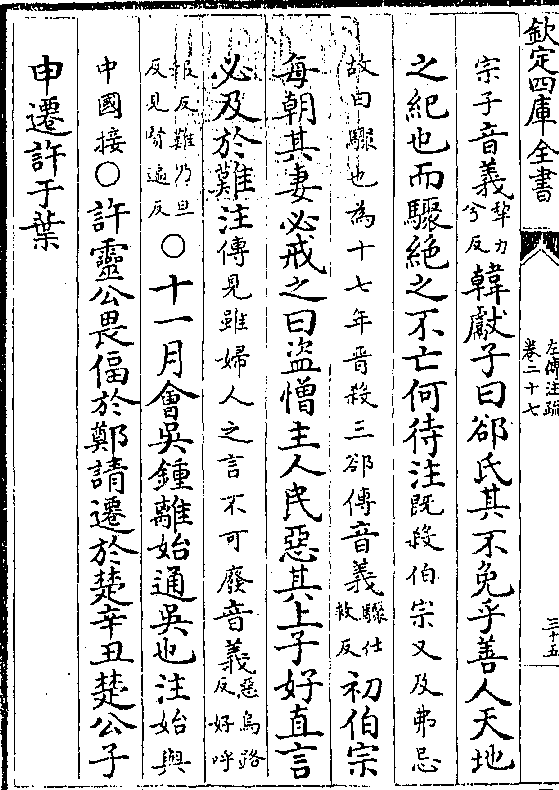 欽定四庫全書
左傳注疏
卷二十七
三十五
宗子音義犂力兮反韓獻子曰郤氏其不免乎善人天地
之紀也而驟絶之不亡何待注既殺伯宗又及弗忌
故曰驟也為十七年晉殺三郤傳音義驟仕救反初伯宗
每朝其妻必戒之曰盗憎主人民惡其上子好直言
必及於難注傳見雖婦人之言不可廢音義惡烏路反好呼
報反難乃旦反見賢遍反〇十一月會吳鍾離始通吳也注始與
中國接〇許靈公畏偪於鄭請遷於楚辛丑楚公子
申遷許于葉